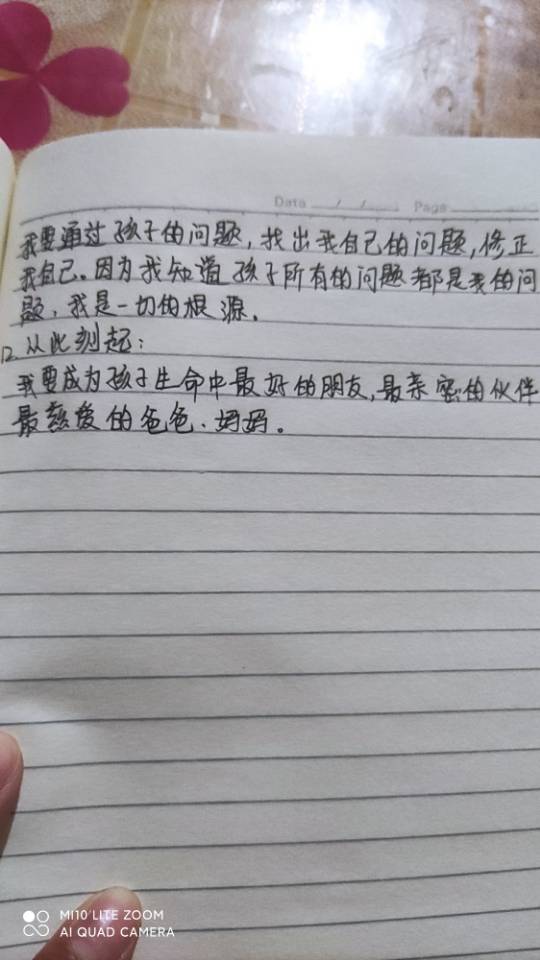 Data / / Page
我要通过孩子的问题，找出我自己的问题，修正
我自己。因为我知道孩子所有的问题都是我的问
题，我是一切的根源。
12 从此刻起：
我要成为孩子生命中最好的朋友，最亲密的伙伴
最慈爱的爸爸、妈妈。
MI10 LITE ZOOM
AI QUAD CAMERA